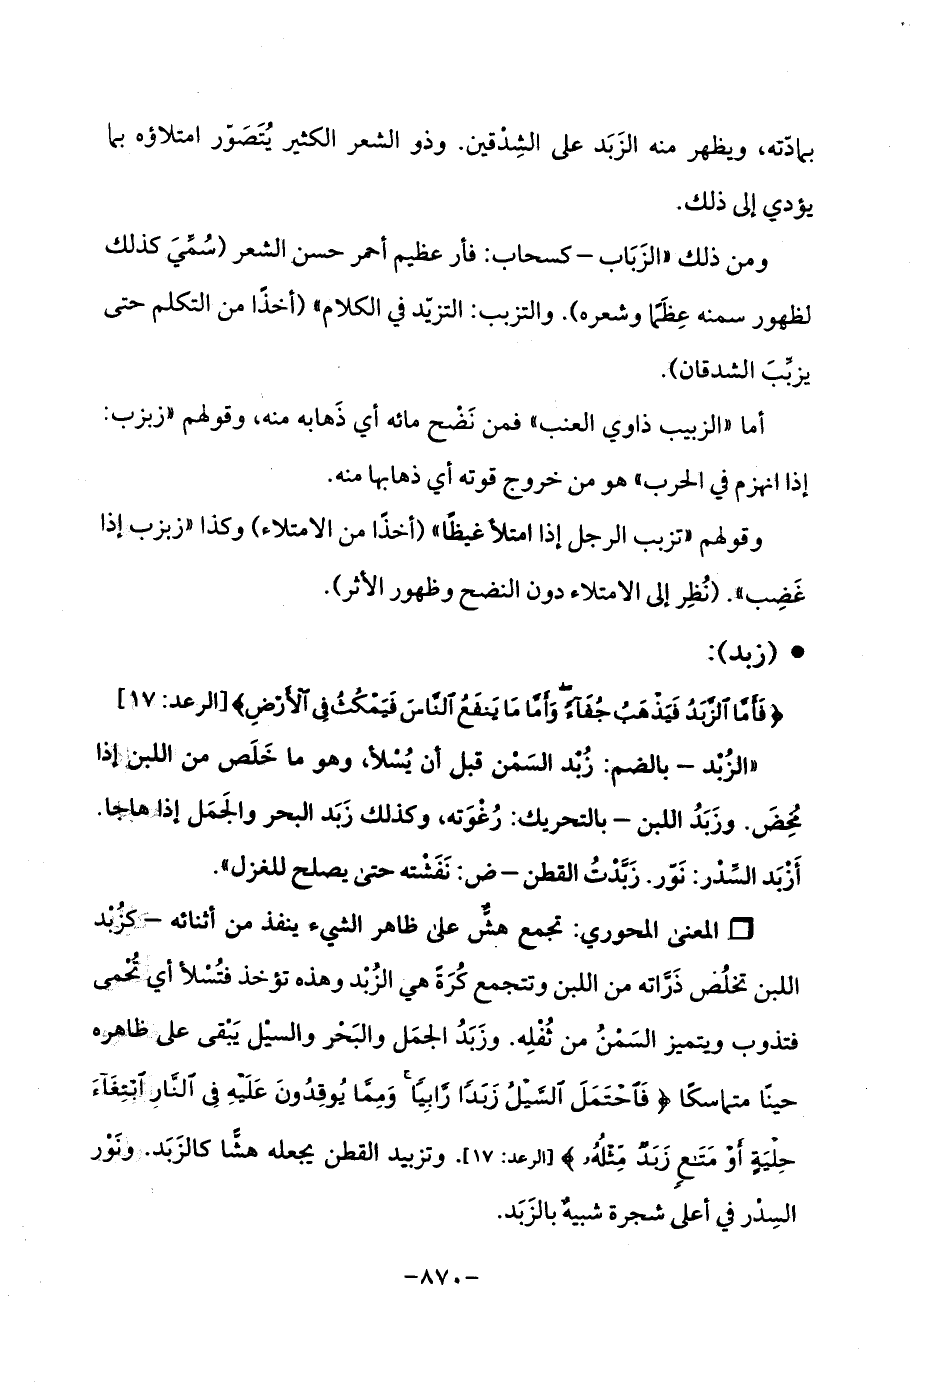 بمادّته، ويظهر منه الزَبَد على الشِدْقين. وذو الشعر الكثير يُتَصَوّر امتلاؤه بما
يؤدي إلى ذلك.
ومن ذلك «الزَبَاب – كسحاب: فأر عظيم أحمر حسن الشعر (سُمِّيَ كذلك
لظهور سمنه عِظَمًا وشعره). والتزبب: التزيّد في الكلام» (أخذًا من التكلم حتى
يزبِّبَ الشدقان).
أما «الزبيب ذاوي العنب» فمن نَضْح مائه أي ذَهابه منه، وقولهم «زبزب:
إذا انهزم في الحرب» هو من خروج قوته أي ذهابها منه.
وقولهم «تزبب الرجل إذا امتلأ غيظًا» (أخذًا من الامتلاء) وكذا «زبزب إذا
غَضِب». (نُظِر إلى الامتلاء دون النضح وظهور الأثر).
● (زبد):
﴿فَأَمَّا ٱلزَّبَدُ فَيَذْهَبُ جُفَآءً ۖ وَأَمَّا مَا يَنفَعُ ٱلنَّاسَ فَيَمْكُثُ فِى ٱلْأَرْضِ﴾ [الرعد: ١٧]
«الزُبْد – بالضم: زُبْد السَمْن قبل أن يُسْلأ، وهو ما خَلَص من اللبن إذا
مُخِضَ. وزَبَدُ اللبن – بالتحريك: رُغْوَته، وكذلك زَبَد البحر والجَمَل إذا هاجا.
أَزْبَد السِّدْر: نَوّر. زَبَّدْتُ القطن – ض: نَفَشْته حتى يصلح للغزل».
❒ المعنى المحوري: تجمع هشٌّ على ظاهر الشيء ينفذ من أثنائه – كزُبْد
اللبن تخلُص ذَرَّاته من اللبن وتتجمع كُرَةً هي الزُبْد وهذه تؤخذ فتُسْلأ أي تُحْمى
فتذوب ويتميز السَمْنُ من ثُفْلِه. وزَبَدُ الجمَل والبَحْر والسيْل يَبْقى على ظاهره
حينًا متماسكًا ﴿ فَٱحْتَمَلَ ٱلسَّيْلُ زَبَدًا رَّابِيًا ۚ وَمِمَّا يُوقِدُونَ عَلَيْهِ فِى ٱلنَّارِ ٱبْتِغَآءَ
حِلْيَةٍ أَوْ مَتَٰعٍ زَبَدٌ مِّثْلُهُۥ ﴾ [الرعد: ١٧]. وتزبيد القطن يجعله هشًّا كالزَبَد. ونَوْر
السِدْر في أعلى شجرة شبيهٌ بالزَبَد.
-٨٧٠-